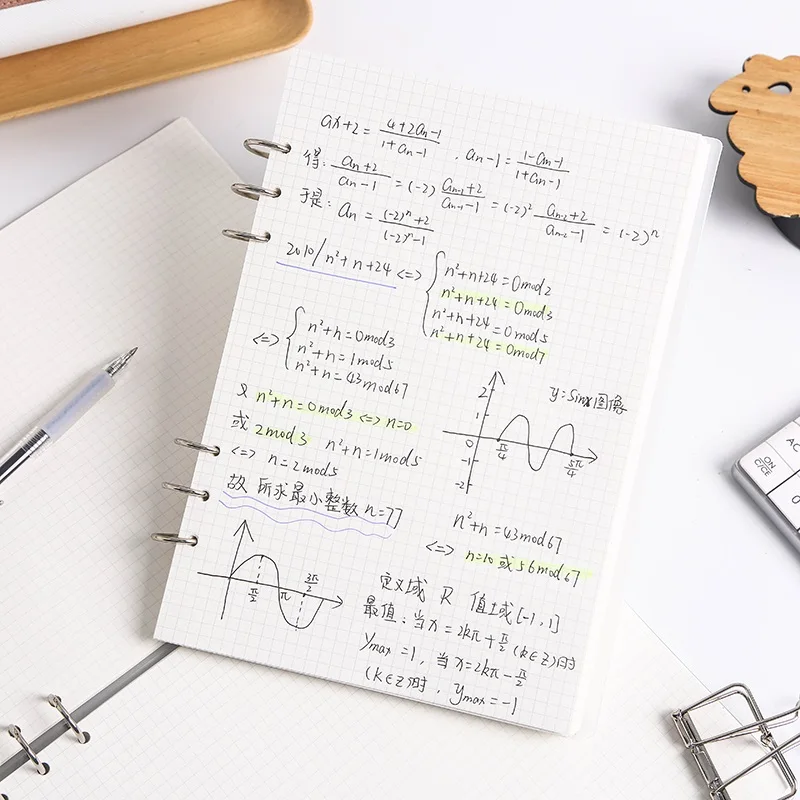 ax+2 = (4+2an-1)/(1+an-1) , an-1 = (1-an-1)/(1+an-1)
得: (an+2)/(an-1) = (-2) (an-1+2)/(an-1-1) = (-2)² (an-2+2)/(an-2-1) = (-2)ⁿ
于是: an = ((-2)ⁿ+2)/((-2)ⁿ-1)
2010/n²+n+24 <=> { n²+n+24=0mod2
n²+n+24=0mod3
n²+n+24=0mod5
n²+n+24=0mod7
<=> { n²+n=0mod3
n²+n=1mod5
n²+n=43mod67
又 n²+n=0mod3 <=> n=0
或 2mod3 n²+n=1mod5
<=> n=2mod5
故 所求最小整数 n=77
y=Sinx图像
2
1
0
-1
-2
π/4
5π/4
n²+n=43mod67
<=> n=10 或 56mod67
π/2
π
3π/2
定义域 R 值域[-1,1]
最值: 当x=2kπ+π/2 (k∈Z)时
Ymax=1, 当x=2kπ-π/2
(k∈Z)时, ymax=-1
ON
C/CE
AC
0